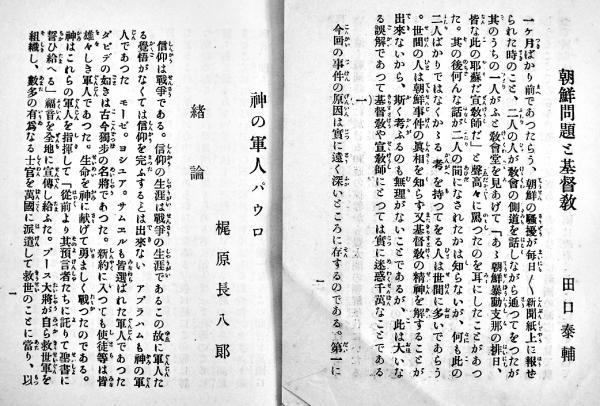 朝鮮問題と基督教
田口泰輔
一ヶ月ばかり前であつたらう、朝鮮の騷擾が毎日〱新聞紙上に報せ
られた時のこと、二人の人が教會の側道を話しながら通つてをつたが
其のうちの一人がふと教會堂を見あげて「あゝ朝鮮暴動支那の排日、
皆な此の耶蘇だ宣教師だ」と聲高々に罵つたのを耳にしたことがあつ
た。其の後何んな話が二人の間になされたかは知らないが、何も此の
二人ばかりではなくかゝる考を持つてをる人は世間に多いであらう
。世間の人は朝鮮事件の眞相を知らず又基督教の精神を解することが
出來ないから、斯く考ふるのも無理がないことであるが、此は大いな
る誤解であつて基督教や宣教師にとつては實に迷惑千萬なことである
(一)
今回の事件の原因は實に遠く深いところに存するのである。第一に
神の軍人パウロ
梶原長八郎
緒論
信仰は戰爭である。信仰の生涯は戰爭の生涯であるこの故に軍人た
る覺悟がなくては信仰を完ふするとは出來ない アブラハムも神の軍
人であつた モーゼ。ヨシユア。サムエルも皆選ばれた軍人であつた
ダビデの如きは古今獨步の名將であつた。新約に入つても使徒等は皆
雄々しき軍人であつた。生命を神に献げて勇ましく戰つたのである。
神はこれらの軍人を指揮して「從前より其預言者たちに託りて聖書に
誓ひ給へる」福音を全地に宣傳し給ふた。ブース大將が自ら救世軍を
組織し、數多の有爲なる士官を萬國に派遣して救世のことに當り、以
一